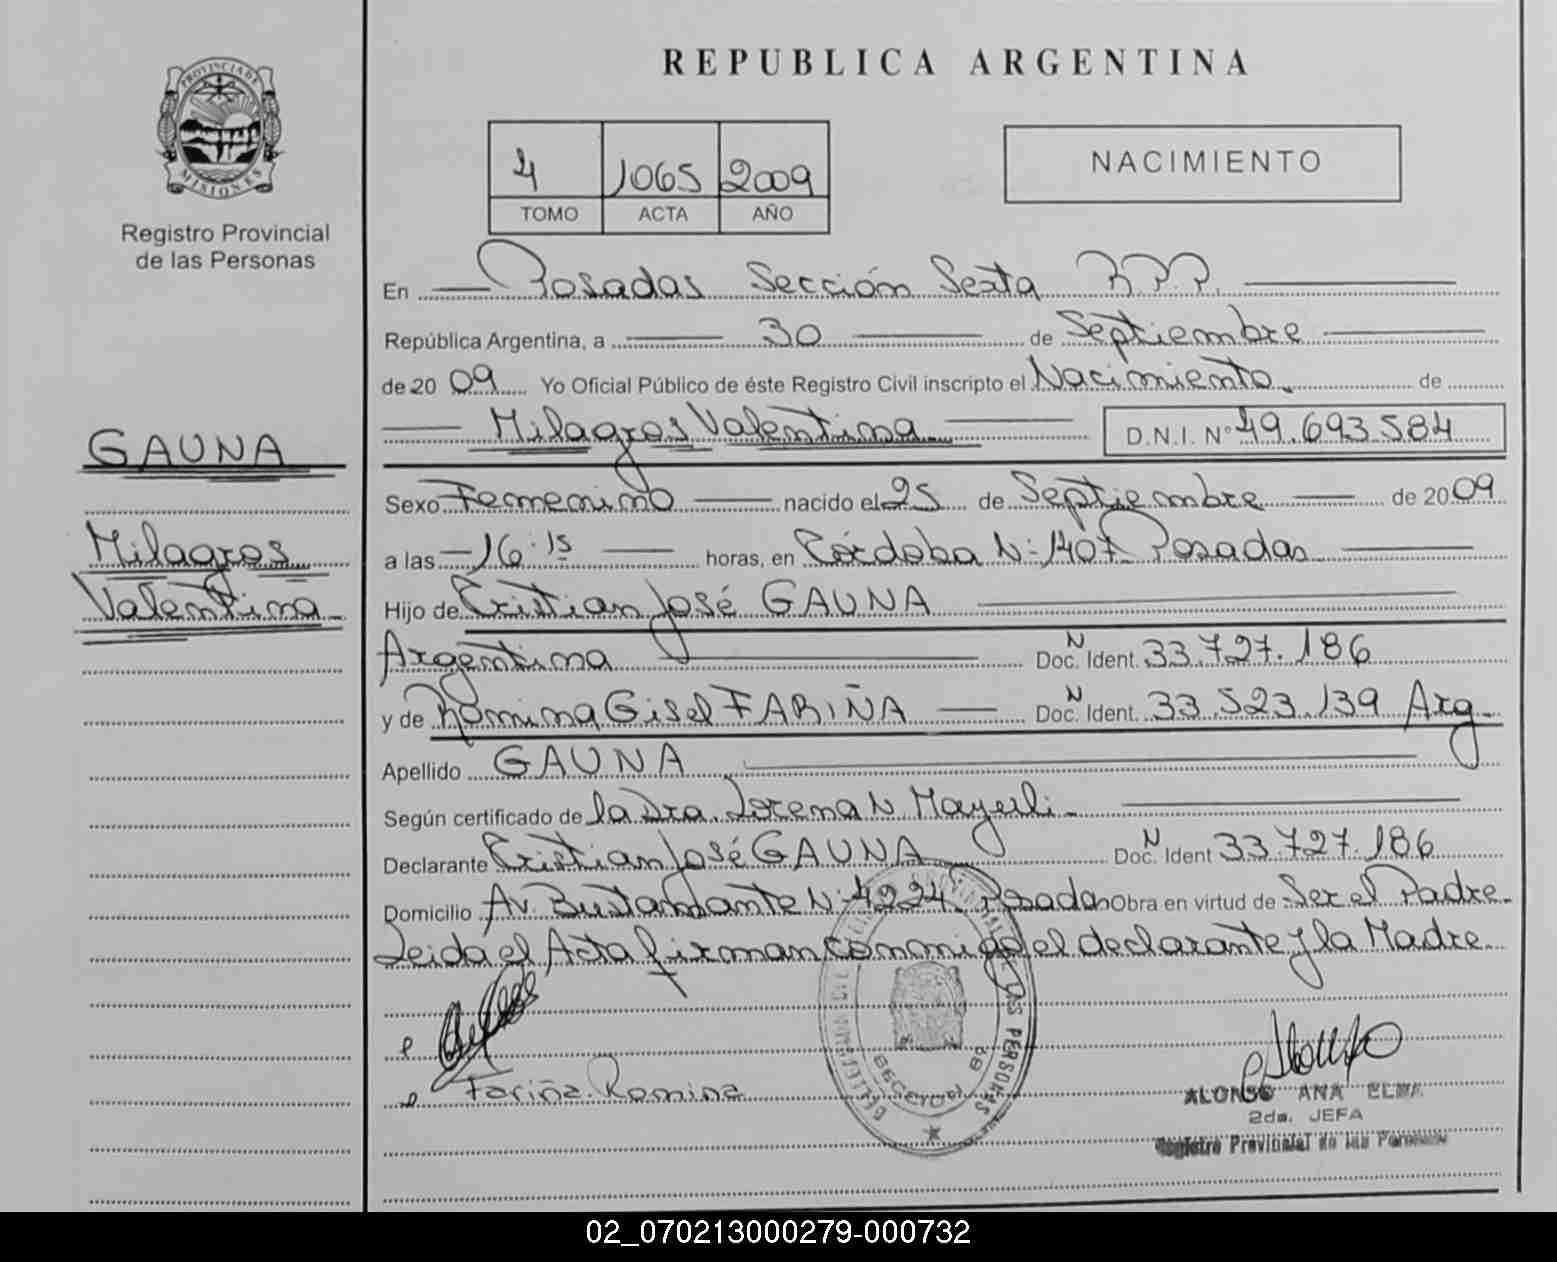 REPUBLICA ARGENTINA
PROVINCIA DE
MISIONES
Registro Provincial
de las Personas
4 1065 2009
TOMO ACTA AÑO
NACIMIENTO
En Posadas Sección Sexta R.P.P.
República Argentina, a 30 de Septiembre
de 20 09 Yo Oficial Público de éste Registro Civil inscripto el Nacimiento. de
Milagros Valentina D.N.I. Nº 49.693.584
GAUNA
Milagros
Valentina
Sexo Femenino nacido el 25 de Septiembre de 20 09
a las 16:15 horas, en Córdoba Nº 1407 Posadas
Hijo de Cristian José GAUNA
Argentina Nº Doc. Ident. 33.727.186
y de Romina Gisel FARIÑA Nº Doc. Ident. 33.523.139 Arg.
Apellido GAUNA
Según certificado de la Dra. Lorena N
Declarante Cristian José GAUNA Nº Doc. Ident 33.727.186
Domicilio Av. Bustamante Nº 4224 Posadas Obra en virtud de Ser el Padre.
Leida el Acta firman conmigo el declarante y la Madre.
Fariña Romina
LAS PERSONAS
ALONSO ANA ELMA
2da. JEFA
Registro Provincial de las Personas
02_070213000279-000732